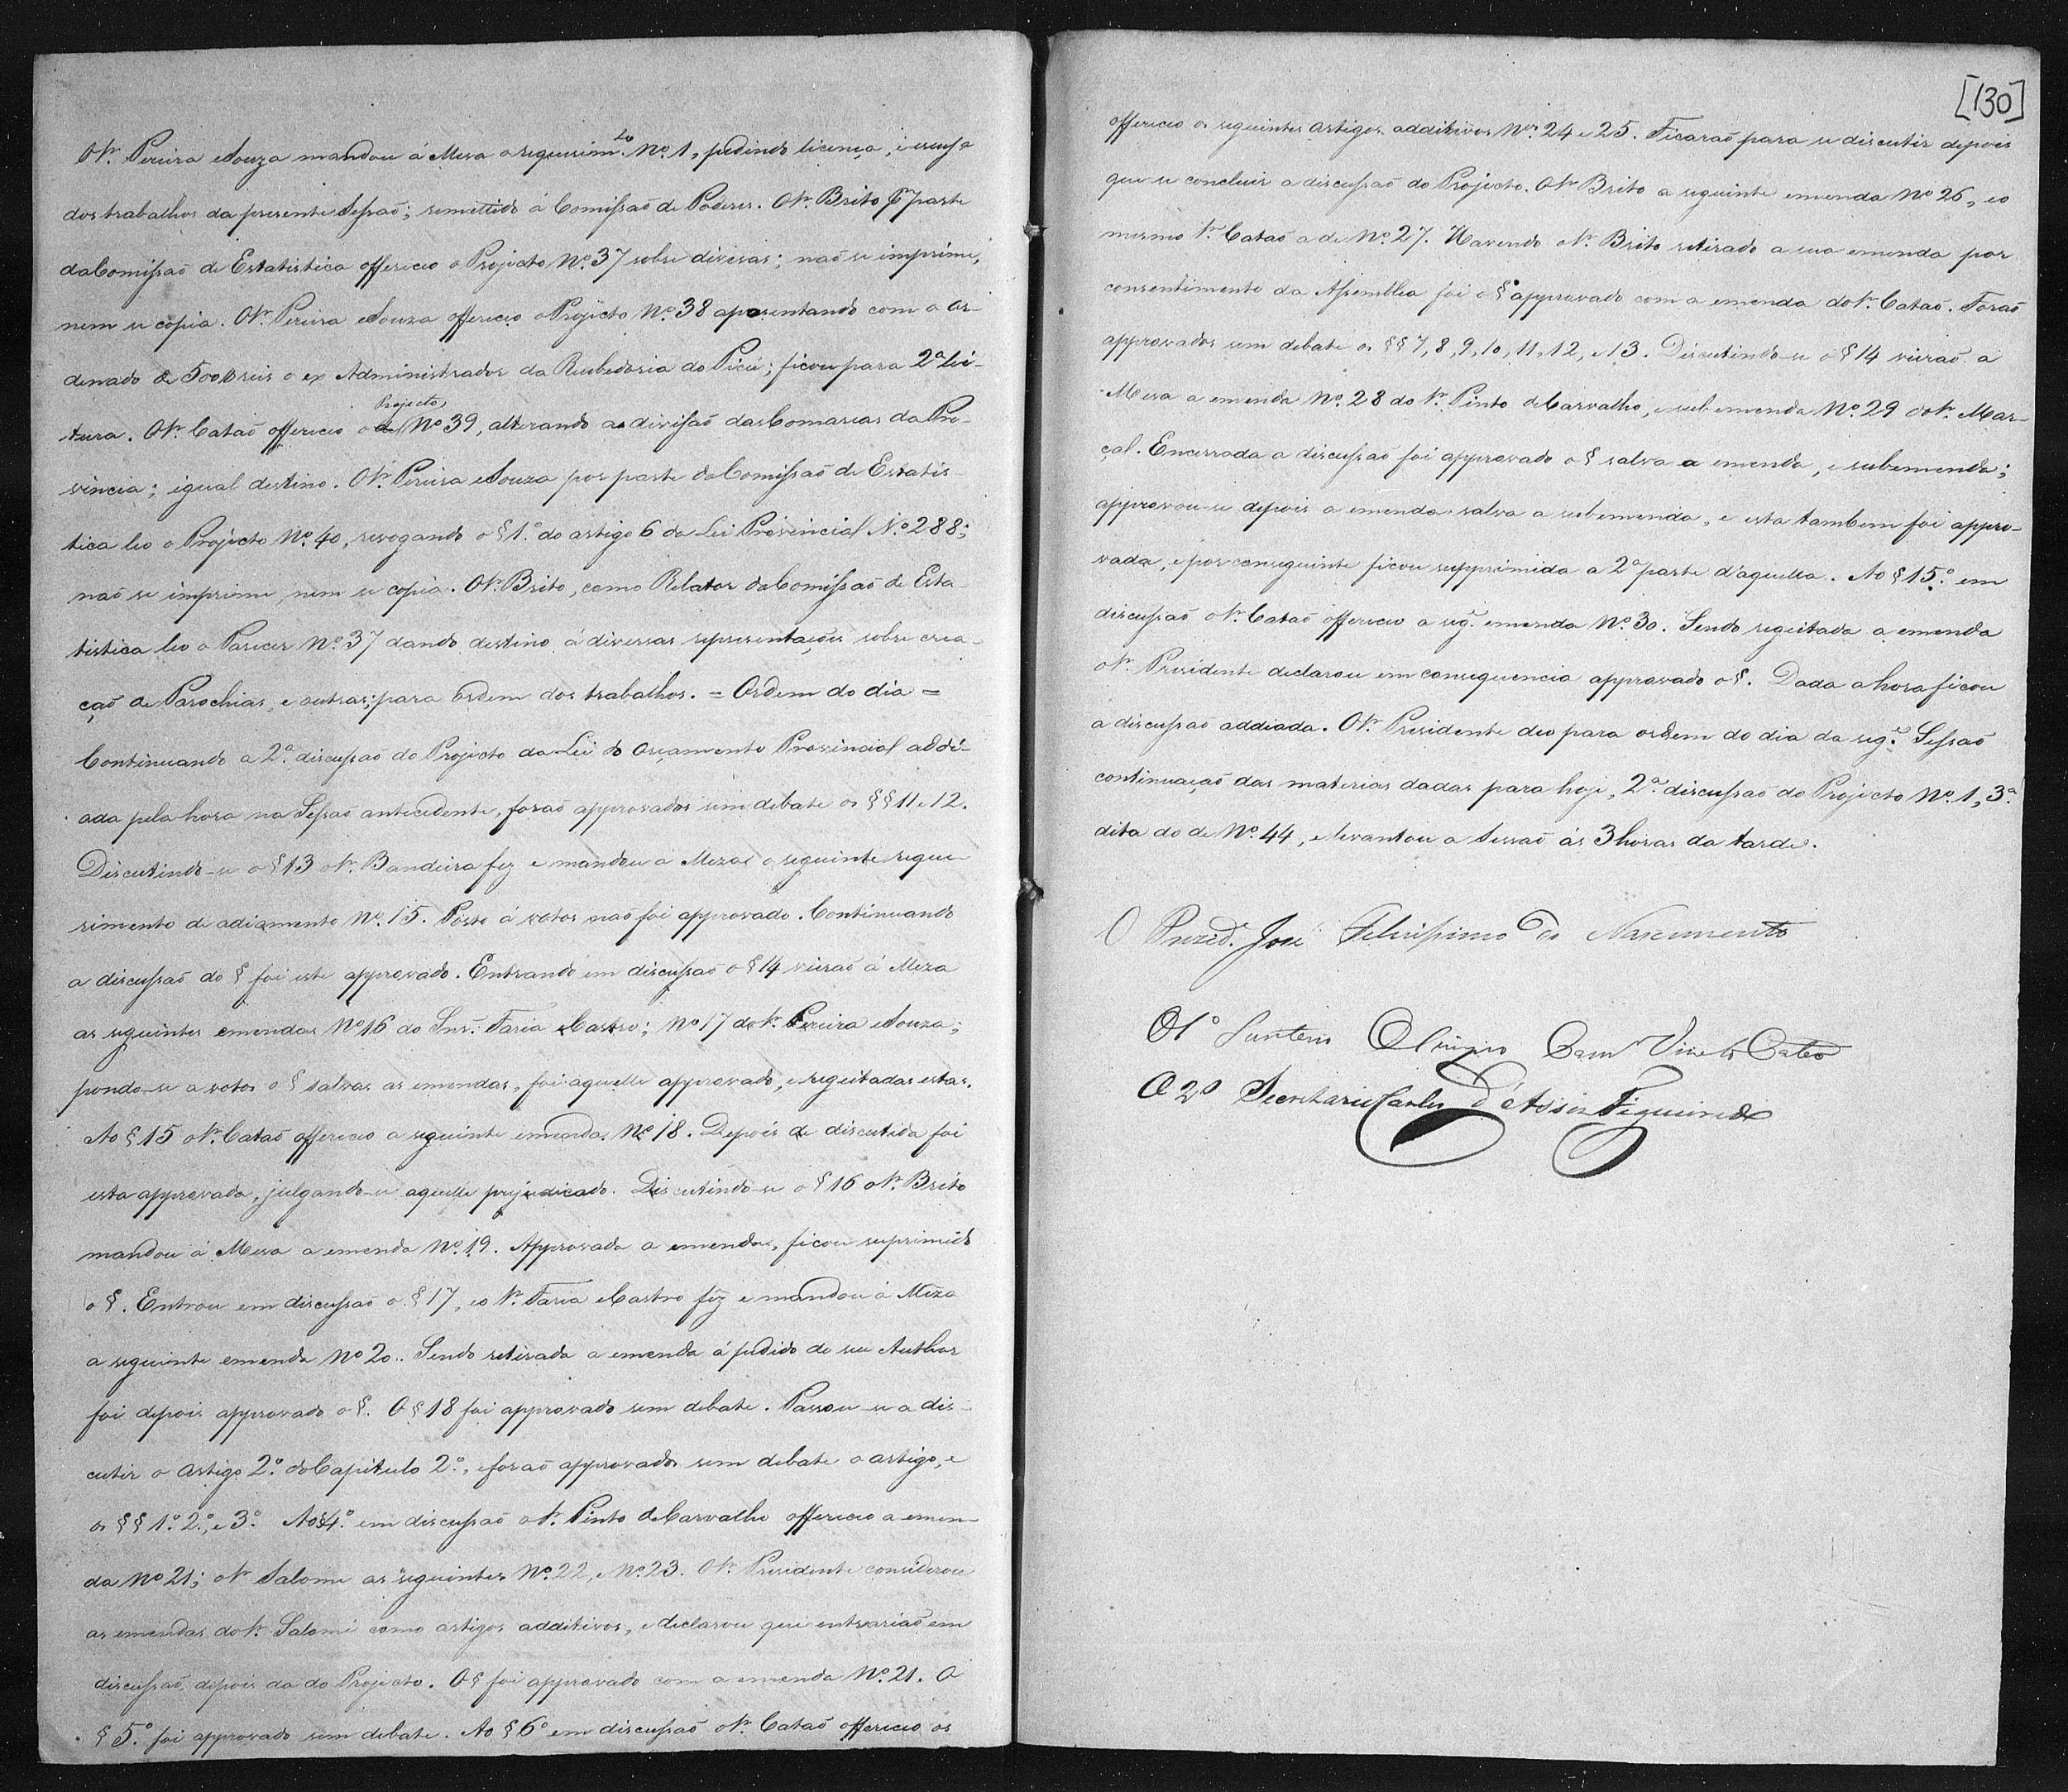 O Sr. Pereira e Souza mandou á Mesa o requerim.to Nº. 1, pedindo licença, e escusa
dos trabalhos da presente Sessaõ; remettido á Comissaõ de Poderes. O Sr. Brito por parte
da Comissaõ de Estatistica offereceo o Projecto Nº. 37 sobre divisas; naõ se imprime,
nem se copia. O Sr. Pereira e Souza offereceo o Projecto Nº. 38 aposentando com o or-
denado de 500$ reis o ex Administrador da Recebedoria do Picú; ficou para 2ª lei-
tura. O Sr. Cataõ offereceo o Projecto, Nº 39, alterando a divisaõ das Comarcas da Pro-
vincia; igual destino. O Sr. Pereira e Souza por parte da Comissaõ de Estatis-
tica leo o Projecto Nº. 40, revogando o § 1.º do artigo 6 da Lei Provincial Nº 288;
naõ se imprime, nem se copia. O Sr. Brito, como Relator da Comissaõ de Esta
tistica leo o Parecer Nº. 37 dando destino á diversas representações sobre crea-
çaõ de Parochias, e outras; para ordem dos trabalhos. = Ordem do dia =
Continuando a 2ª. discussaõ do Projecto da Lei do Orçamento Provincial addi-
ada pela hora na Sessaõ antecedente, foraõ approvados sem debate os §§ 11 e 12.
Discutindo-se o § 13 o Sr. Bandeira fez e mandou á Meza o seguinte reque-
rimento de adiamento Nº. 15. Posto á votos naõ foi approvado. Continuando
a discussaõ do § foi este approvado. Entrando em discussaõ o § 14 vieraõ á Meza
as seguintes emendas Nº 16 do Snr. Faria e Castro; Nº 17 do Sr. Pereira e Souza;
pondo-se a votos o § salvas as emendas, foi aquelle approvado, e regeitadas estas.
Ao § 15 o Sr. Cataõ offereceo a seguinte emenda Nº 18. Depois de discutida foi
esta approvada, julgando-se aquelle prejudicado. Discutindo-se o § 16 o Sr. Brito
mandou á Mesa a emenda Nº. 19. Approvada a emenda, ficou suprimido
o §. Entrou em discussaõ o § 17, e o Sr. Faria e Castro fez e mandou á Meza
a seguinte emenda Nº 20. Sendo retirada a emenda á pedido do seu Author
foi depois approvado o §. O § 18 foi approvado sem debate. Passou-se a dis-
cutir o artigo 2º. do Capitulo 2º., e foraõ approvados sem debate o artigo, e
os §§ 1º. 2º., e 3º. Ao § 4º. em discussaõ o Sr. Pinto de Carvalho offereceo a emen-
da Nº 21; o Sr. Salomé as seguintes Nº. 22, e Nº. 23. O Sr. Presidente considerou
as emendas do Sr. Salomé como artigos additivos, e declarou que entrariaõ em
discussaõ depois da do Projecto. O § foi approvado com a emenda Nº. 21. O
§ 5.º foi approvado sem debate. Ao § 6º em discussaõ o Sr. Cataõ offereceo os
[130]
offereceo os seguintes artigos additivos Nos 24 e 25. Ficaraõ para se discutir depois
que se concluir a discussaõ do Projecto. O Sr. Brito a seguinte emenda Nº 26, e o
mesmo Sr. Cataõ a de Nº. 27. Havendo o Sr. Brito retirado a sua emenda por
consentimento da Assemblea foi o § approvado com a emenda do Sr. Cataõ. Foraõ
approvados sem debate os §§ 7, 8, 9, 10, 11, 12, e 13. Discutindo-se o § 14 vieraõ a
Mesa a emenda Nº. 28 do Sr. Pinto de Carvalho, e subemenda Nº. 29 do Sr. Mar-
çal. Encerrada a discussaõ foi approvado o § salva a emenda, e subemenda;
approvou-se depois a emenda salva a subemenda, e esta tambem foi appro-
vada, e por conseguinte ficou supprimida a 2ª parte d'aquella. Ao § 15º. em
discussaõ o Sr. Cataõ offereceo a seg.e emenda Nº. 30. Sendo regeitada a emenda
o Sr. Presidente declarou em consequencia approvado o §. Dada a hora ficou
a discussaõ addiada. O Sr. Presidente deo para ordem do dia da seg.e Sessaõ
continuaçaõ das materias dadas para hoje, 2ª. discussaõ do Projecto Nº. 1, 3ª.
dita do de Nº. 44, e levantou a Sessaõ ás 3 horas da tarde.
O Prezid. José Felicissimo do Nascimento
O 1º Carneiro Viriato Cataõ
O 2º Secretario Carlos d'Assis Figueiredo